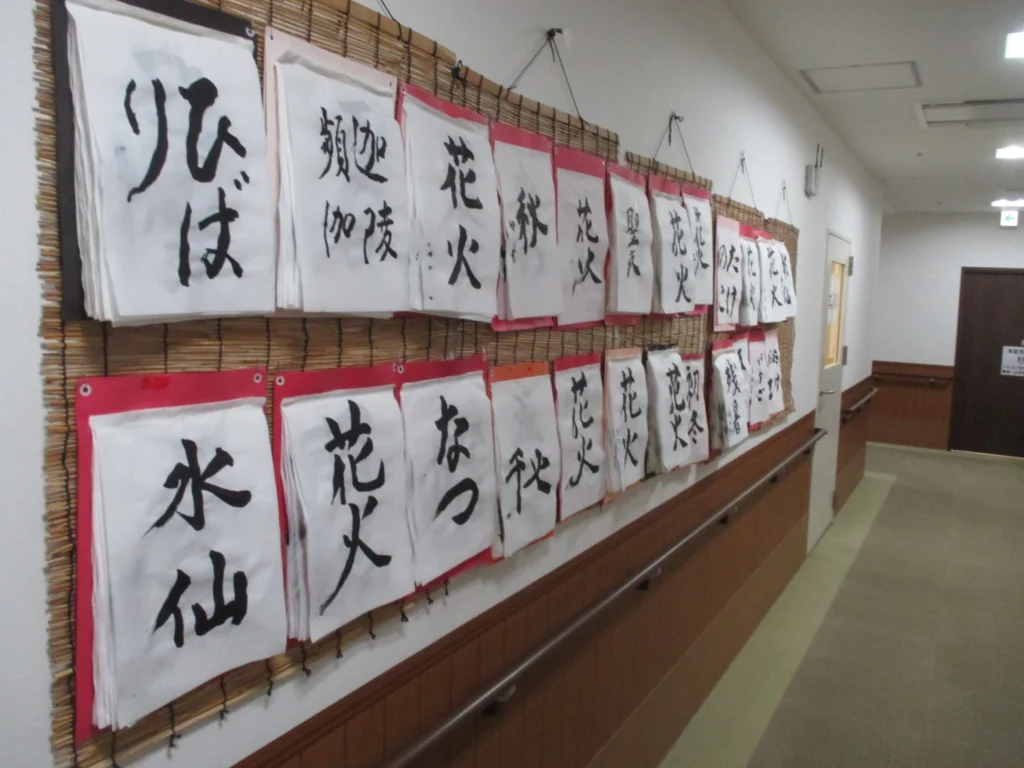 ひば
り
迦陵
頻伽
花火
秋
花火
花火
たけ
のこ
花火
花火
水仙
花火
なつ
秋
花火
花火
花火
初冬
残暑